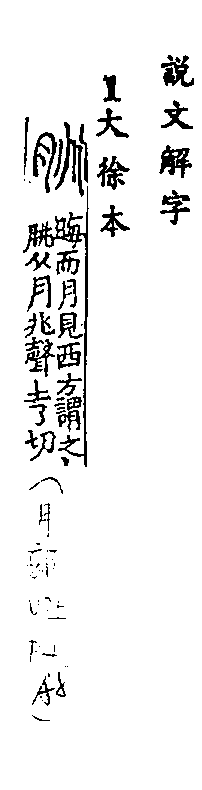 説文解字
1大徐本
朓
晦而月見西方謂之
朓从月兆聲土了切
(月部